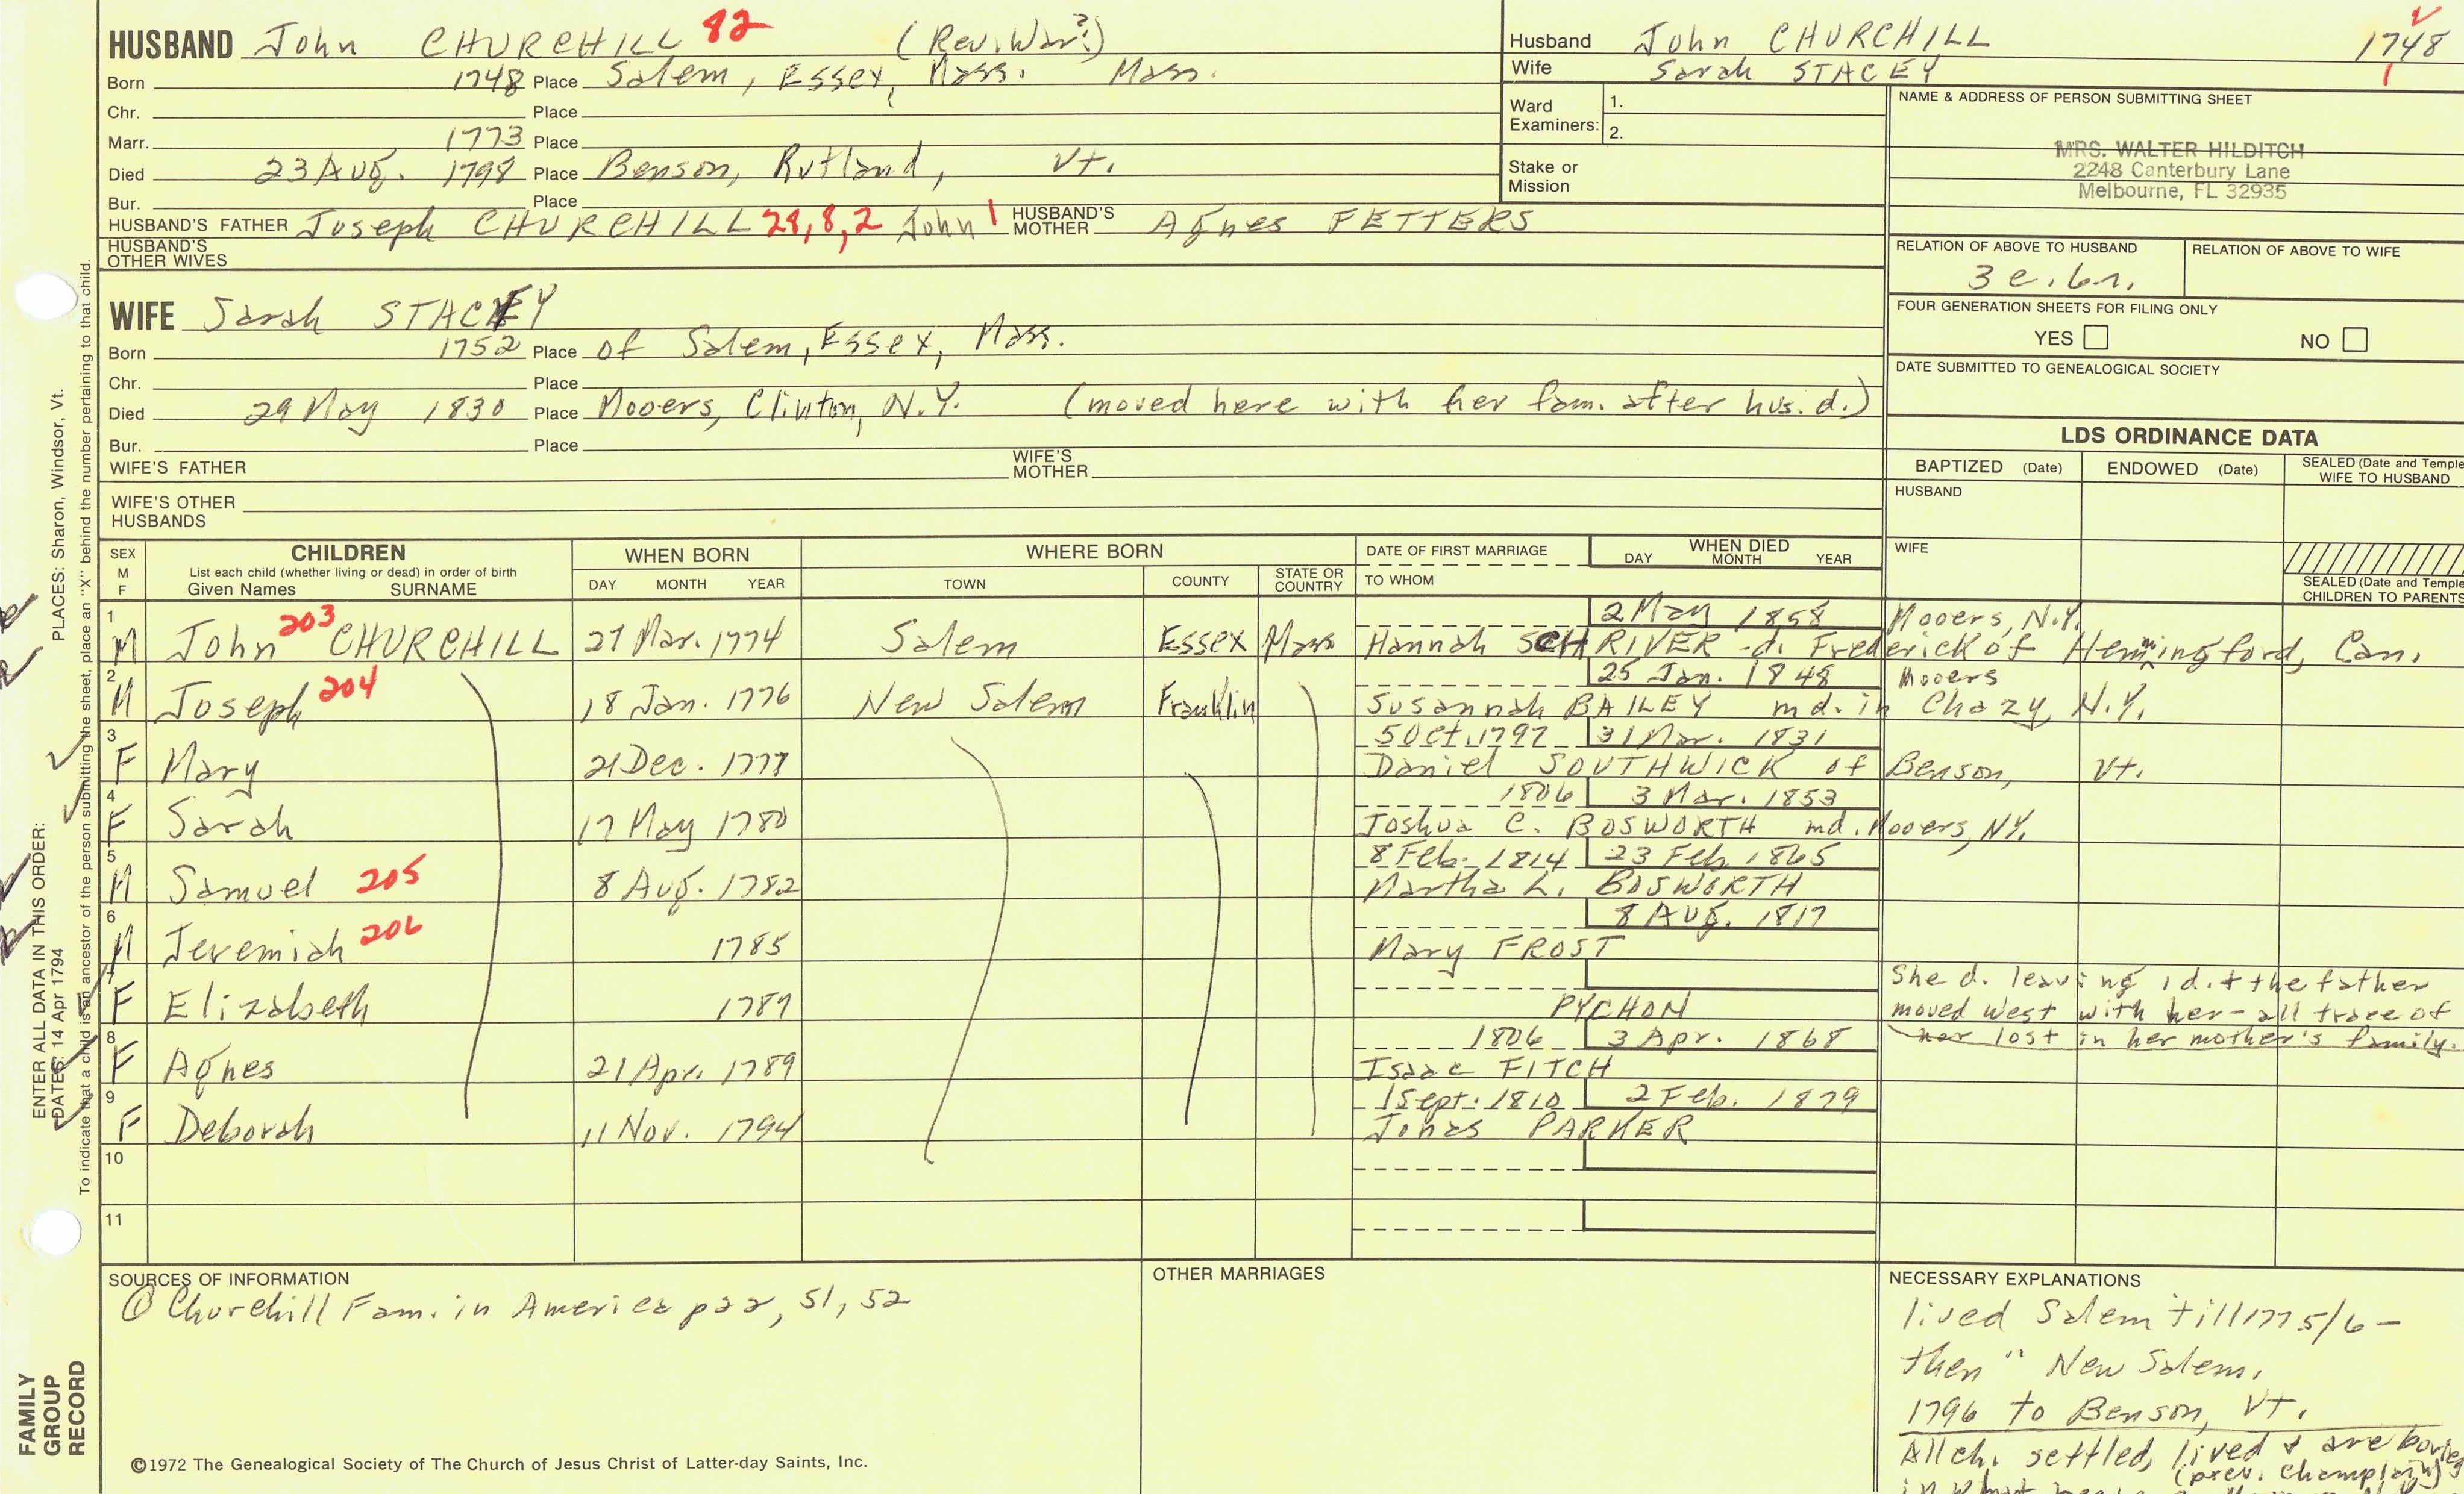 HUSBAND John CHURCHILL 82 (Rev. War?)
Born 1748 Place Salem, Essex, Mass. Mass.
Chr. Place
Marr. 1773 Place
Died 23 Aug. 1798 Place Benson, Rutland, Vt.
Bur. Place
HUSBAND'S FATHER Joseph CHURCHILL 28,8,2 John 1 HUSBAND'S MOTHER Agnes FETTERS
HUSBAND'S OTHER WIVES
Husband John CHURCHILL 1748
Wife Sarah STACEY 1
Ward Examiners: 1.
2.
Stake or Mission
NAME & ADDRESS OF PERSON SUBMITTING SHEET
MRS. WALTER HILDITCH
2248 Canterbury Lane
Melbourne, FL 32935
RELATION OF ABOVE TO HUSBAND RELATION OF ABOVE TO WIFE
FOUR GENERATION SHEETS FOR FILING ONLY
YES NO
DATE SUBMITTED TO GENEALOGICAL SOCIETY
WIFE Sarah STACEY
Born 1752 Place of Salem, Essex, Mass.
Chr. Place
Died 29 May 1830 Place Mooers, Clinton, N.Y. (moved here with her fam. after hus. d.)
Bur. Place
WIFE'S FATHER WIFE'S MOTHER
WIFE'S OTHER HUSBANDS
LDS ORDINANCE DATA
BAPTIZED (Date) ENDOWED (Date) SEALED (Date and Temple
WIFE TO HUSBAND
HUSBAND
WIFE
SEALED (Date and Temple
CHILDREN TO PARENTS
SEX M F CHILDREN WHEN BORN WHERE BORN DATE OF FIRST MARRIAGE WHEN DIED
List each child (whether living or dead) in order of birth
Given Names SURNAME DAY MONTH YEAR TOWN COUNTY STATE OR COUNTRY TO WHOM DAY MONTH YEAR
1 2 May 1858 Mooers, N.Y.
M John 203 CHURCHILL 27 Mar. 1774 Salem Essex Mass Hannah SCHRIVER - d. Frederick of Hemmingford, Can.
2 25 Jan. 1848 Mooers
M Joseph 204 18 Jan. 1776 New Salem Franklin Susannah BAILEY md. in Chazy, N.Y.
3 5 Oct. 1797 31 Mar. 1831
F Mary 21 Dec. 1777 Daniel SOUTHWICK of Benson, Vt.
4 1806 3 Mar. 1853
F Sarah 17 May 1780 Joshua C. BOSWORTH md. Mooers, NY.
5 8 Feb. 1814 23 Feb 1865
M Samuel 205 8 Aug. 1782 Martha L. BOSWORTH
6 8 Aug. 1817
M Jeremiah 206 1785 Mary FROST
7 She d. leaving 1 d. + the father
F Elizabeth 1787 PYCHON moved west with her - all trace of
8 1806 3 Apr. 1868 her lost in her mother's family.
F Agnes 21 Apr. 1789 Isaac FITCH
9 1 Sept. 1810 2 Feb. 1879
F Deborah 11 Nov. 1794 Jonas PARKER
10
11
SOURCES OF INFORMATION
Churchill Fam. in America p 22, 51, 52
OTHER MARRIAGES
NECESSARY EXPLANATIONS
lived Salem till 1775/6 -
then " New Salem.
1796 to Benson, Vt.
All ch. settled, lived + are buried
(prev. Champlain)
©1972 The Genealogical Society of The Church of Jesus Christ of Latter-day Saints, Inc.
FAMILY GROUP RECORD
ENTER ALL DATA IN THIS ORDER:
DATES: 14 Apr 1794
PLACES: Sharon, Windsor, Vt.
To indicate that a child is an ancestor of the person submitting the sheet, place an "X" behind the number pertaining to that child.